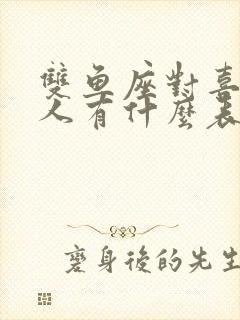 雙魚座對喜
人有什麼表
變身後的先生